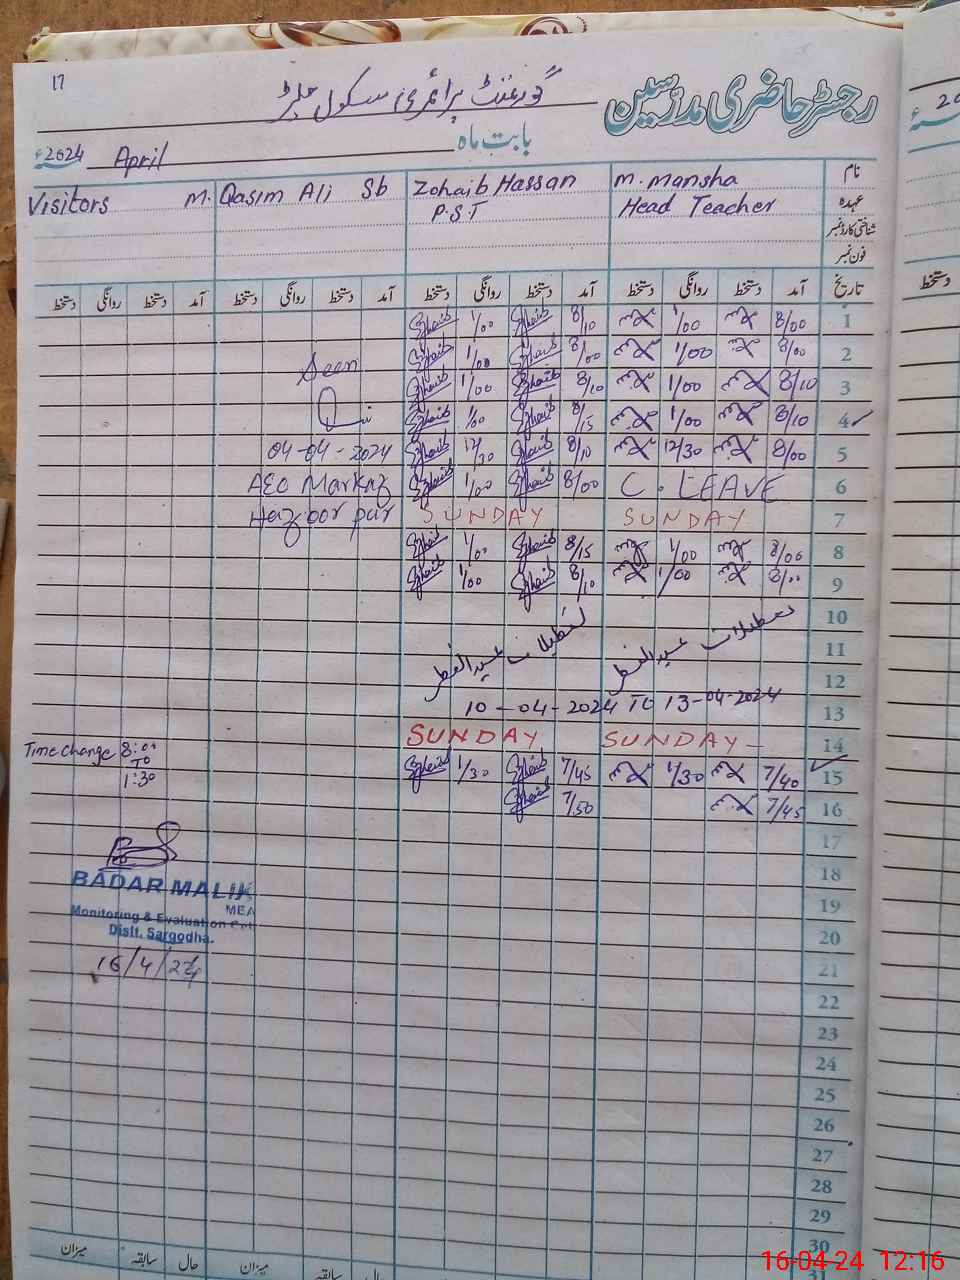 17
گورنمنٹ پرائمری سکول
رجسٹر حاضری مدرسین
2024ء April بابت ماہ
Visitors M. Qasim Ali Sb Zohaib Hassan M. Mansha نام
P.S.T Head Teacher عہدہ
شناختی کارڈ نمبر
فون نمبر
دستخط روانگی دستخط آمد دستخط روانگی دستخط آمد دستخط روانگی دستخط آمد دستخط روانگی دستخط آمد تاریخ
Zohaib 1/00 Zohaib 8/10 1/00 8/00 1
Seen Zohaib 1/00 Zohaib 8/00 1/00 8/00 2
Zohaib 1/00 Zohaib 8/10 1/00 8/10 3
Zohaib 1/00 Zohaib 8/15 1/00 8/10 4
04-04-2024 Zohaib 12/30 Zohaib 8/10 12/30 8/00 5
AEO Markaz Zohaib 1/00 Zohaib 8/00 C. LEAVE 6
Hazoor pur SUNDAY SUNDAY 7
Zohaib 1/00 Zohaib 8/15 1/00 8/00 8
Zohaib 1/00 Zohaib 8/10 1/00 8/00 9
10
تعطیلات عیدالفطر تعطیلات عیدالفطر 11
12
10-04-2024 To 13-04-2024 13
SUNDAY SUNDAY 14
Time change 8:00 To 1:30 Zohaib 1/30 Zohaib 7/45 1/30 7/40 15
Zohaib 7/50 7/45 16
17
BADAR MALIK 18
MEA
Monitoring & Evaluation Cell 19
Distt. Sargodha. 20
16/4/24 21
22
23
24
25
26
27
28
29
30
میزان سابقہ حال میزان سابقہ حال
31
16-04-24 12:16